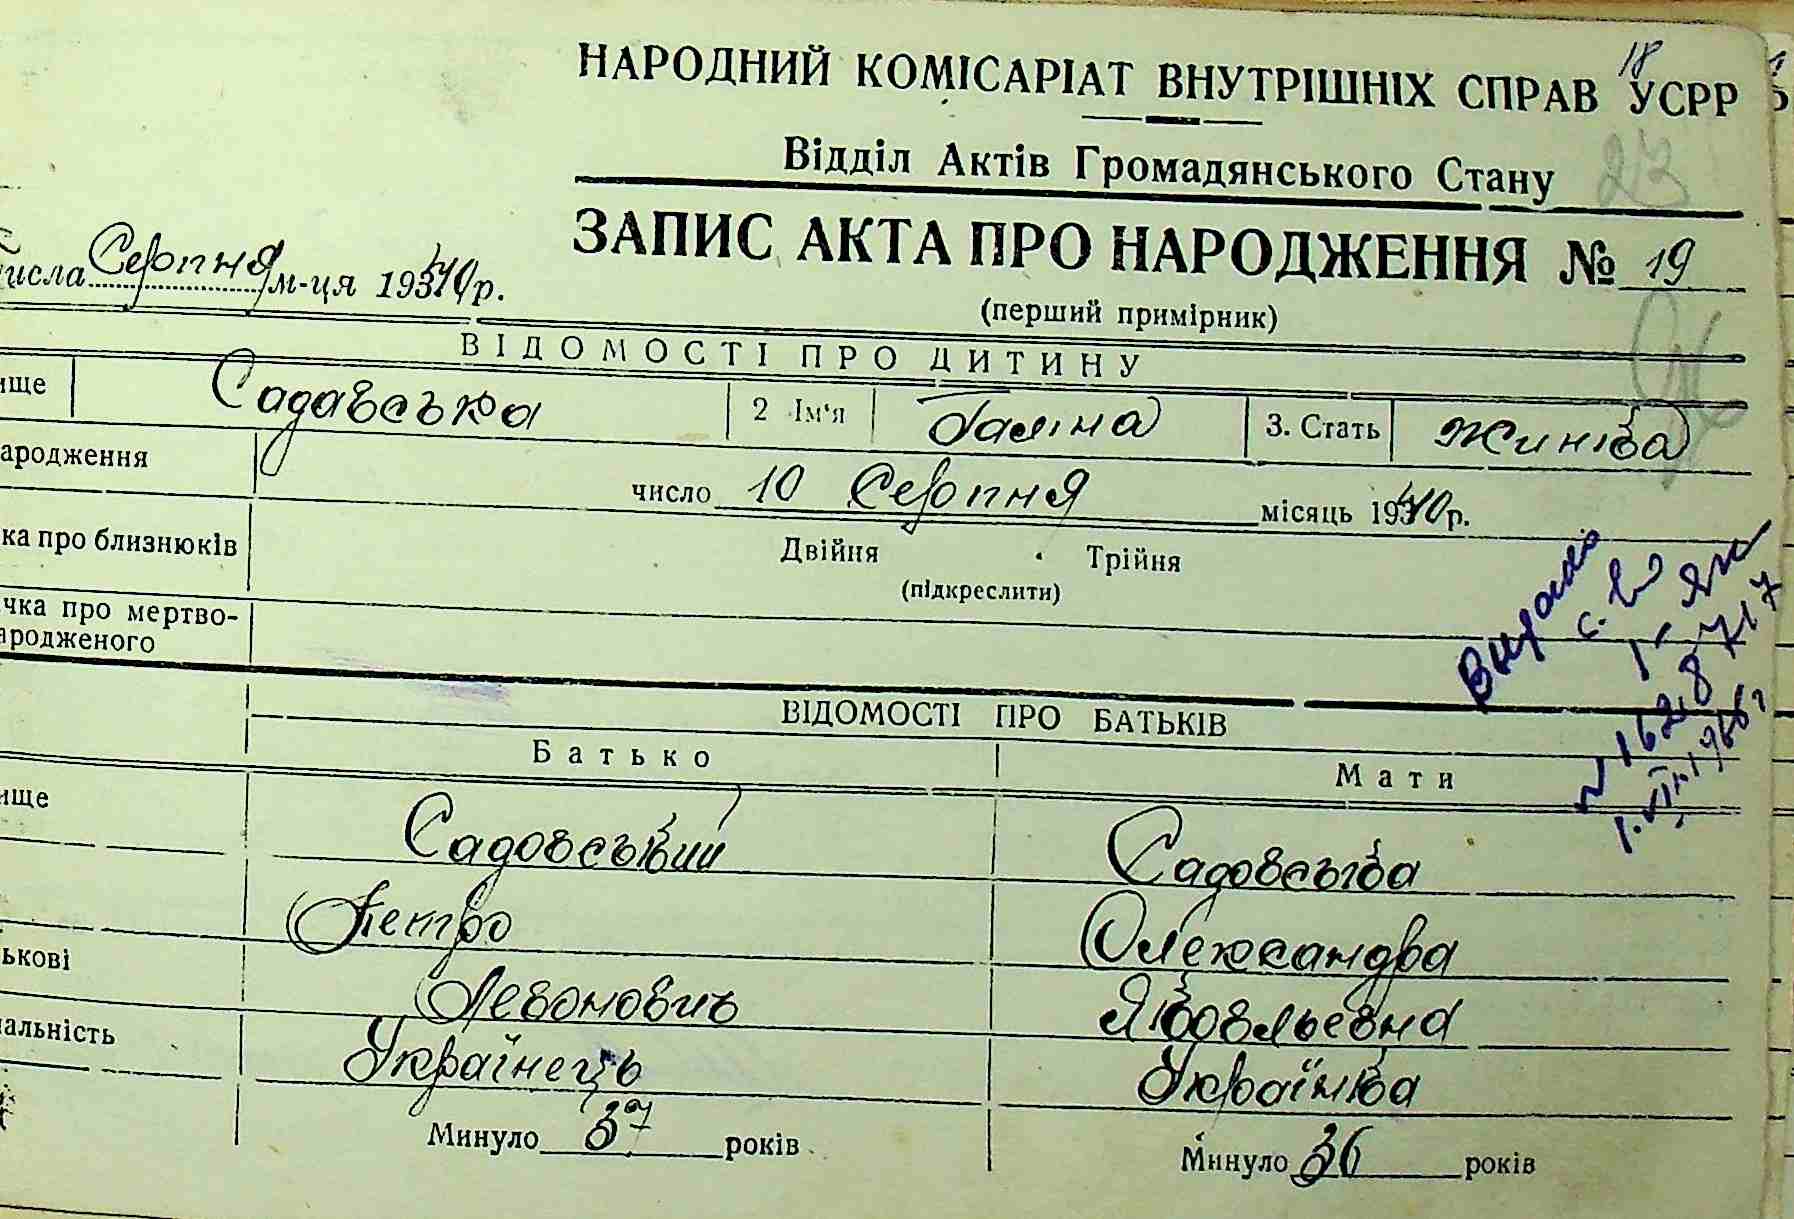 18
НАРОДНИЙ КОМІСАРІАТ ВНУТРІШНІХ СПРАВ УСРР
Відділ Актів Громадянського Стану 23
ЗАПИС АКТА ПРО НАРОДЖЕННЯ № 19
исла Серпня м-ця 1940 р.
(перший примірник)
ВІДОМОСТІ ПРО ДИТИНУ
ище Садавська 2 Ім'я Галіна 3. Стать жиніва
ародження число 10 Серпня місяць 1940 р.
ка про близнюків Двійня Трійня
(підкреслити)
чка про мертво-
ародженого
Видано
с. в
1628717
ВІДОМОСТІ ПРО БАТЬКІВ
Батько Мати
ище Садовський Садовська
Петро Олександра
ькові Левонович Яковльевна
альність Українець Українка
Минуло 37 років Минуло 36 років